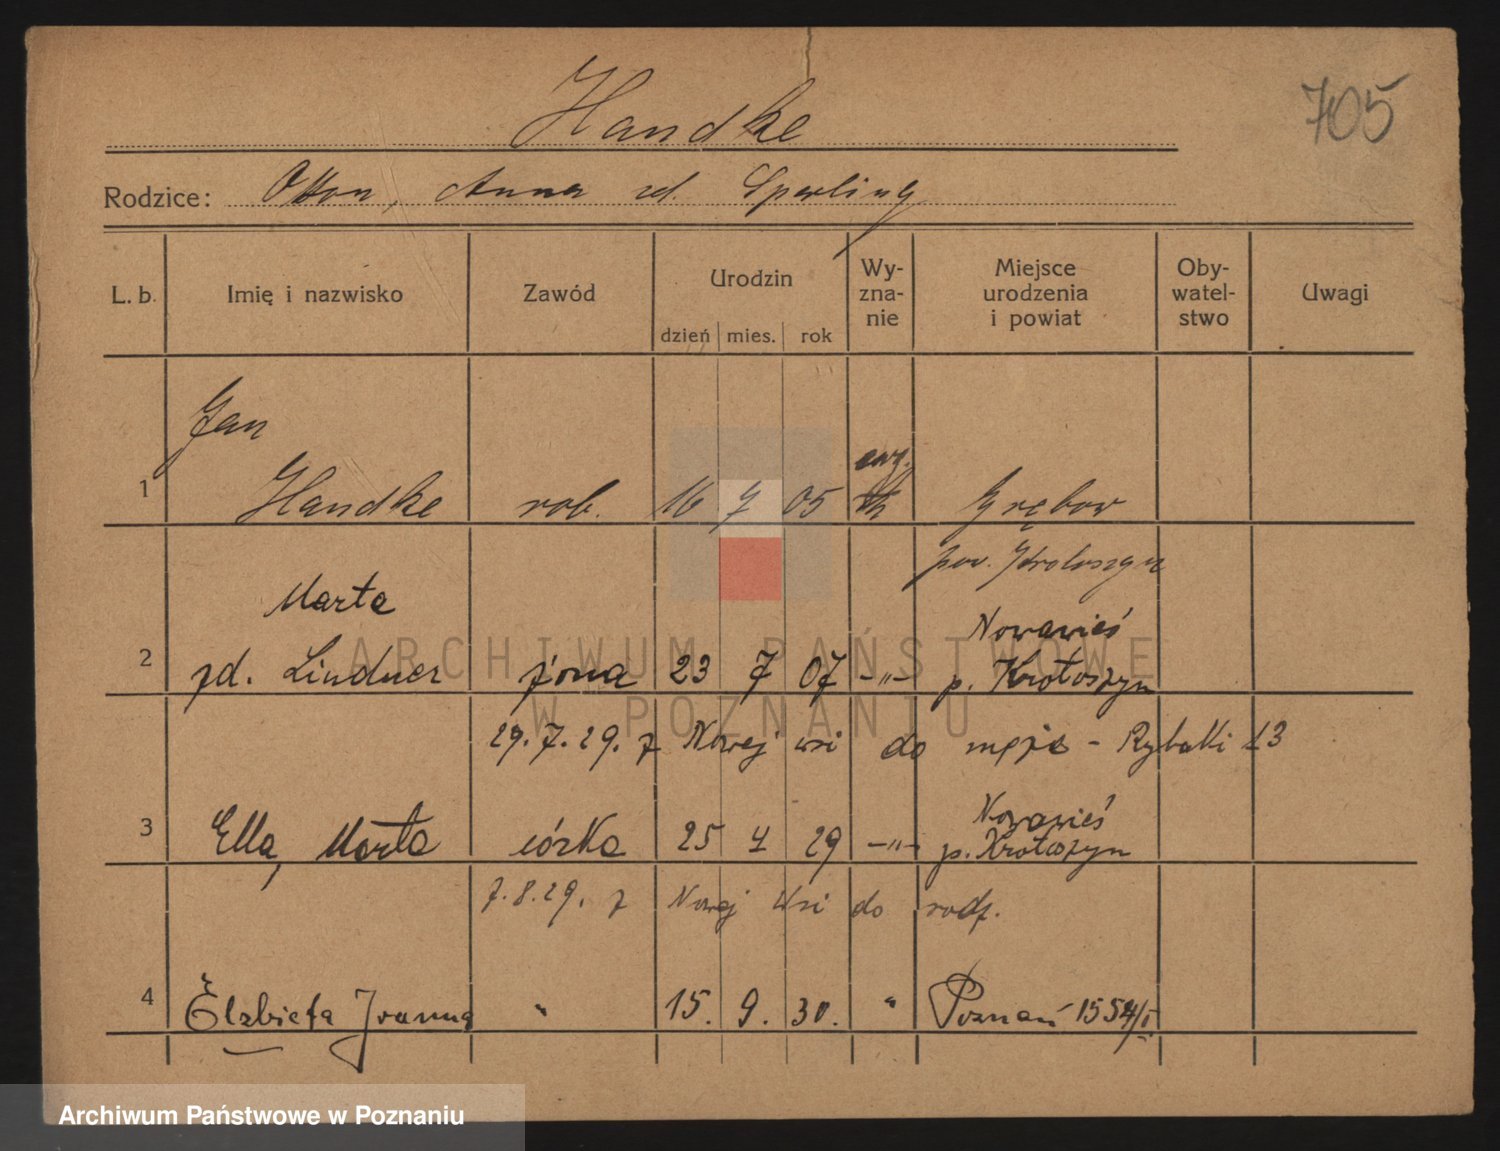 705
Handke
Rodzice: Otton, Anna zd. Sperling
L. b. Imię i nazwisko Zawód Urodzin dzień mies. rok Wy-zna-nie Miejsce urodzenia i powiat Oby-watel-stwo Uwagi
Jan
ewg.
1 Handke rob. 16 7 05 Grębow
pow. Krotoszyn
Marta Nowawieś
2 zd. Lindner żona 23 7 07 -"- p. Krotoszyn
29. 7. 29. z Nowej wsi do męża - Rybaki 13
Nowawieś
3 Ella, Marta córka 25 4 29 -"- p. Krotoszyn
7. 8. 29. z Nowej Wsi do rodz.
4 Elzbieta Joanna " 15. 9. 30. " Poznań 1554/I
ARCHIWUM PAŃSTWOWE
W POZNANIU
Archiwum Państwowe w Poznaniu